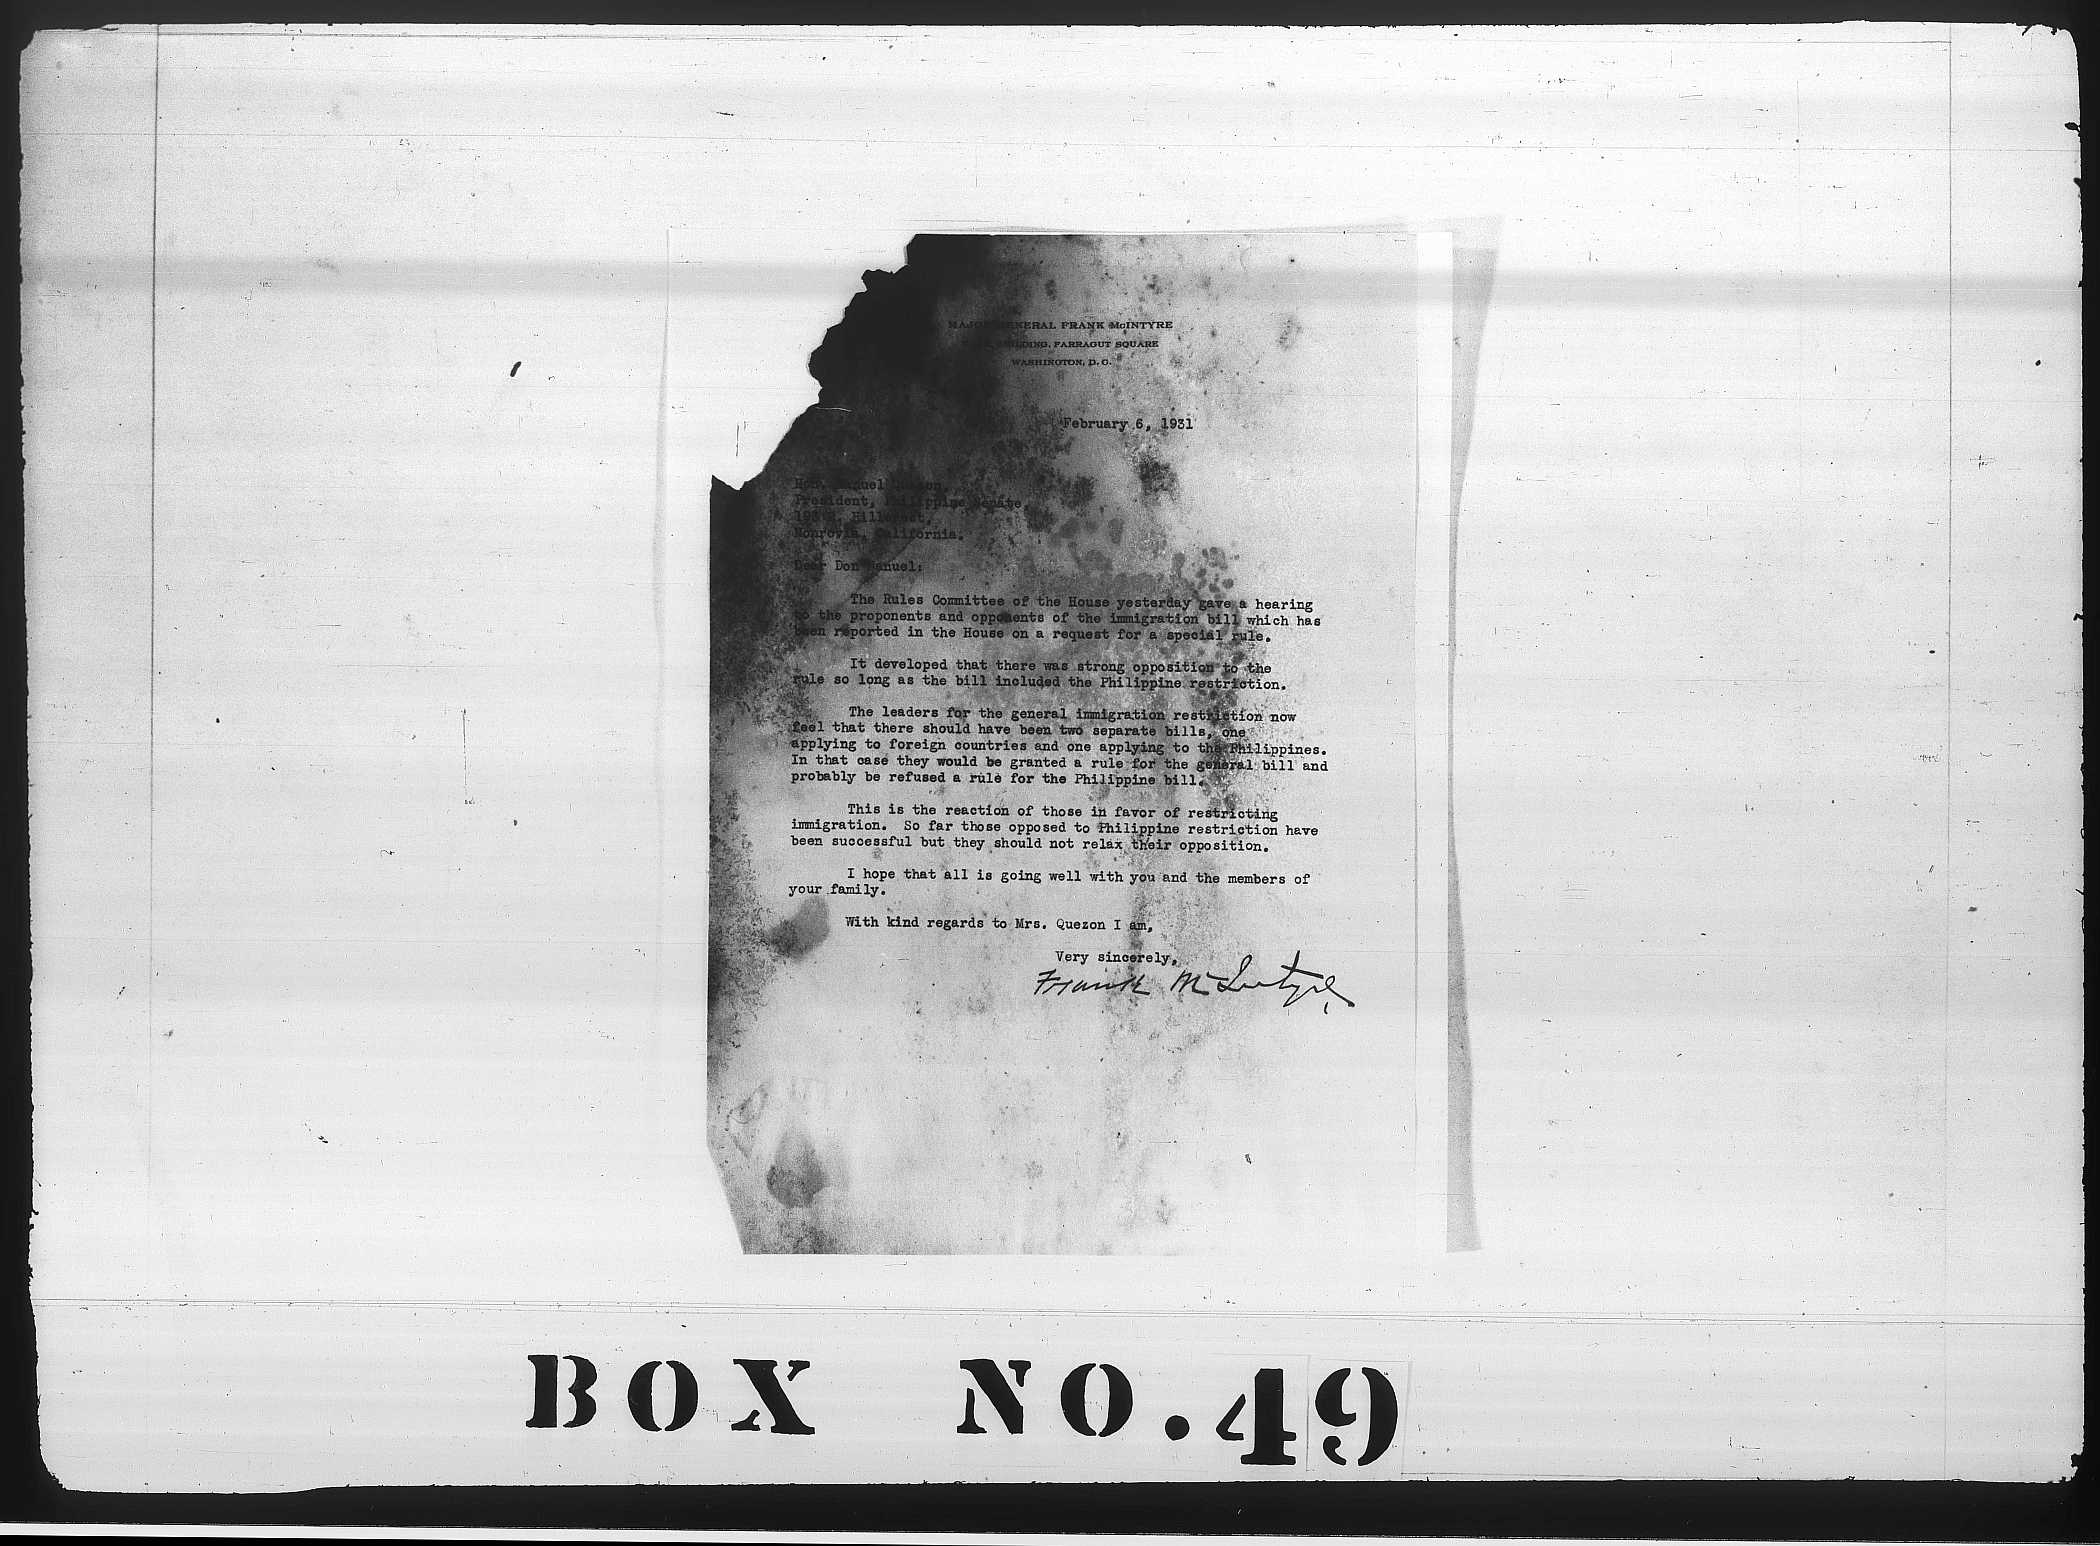 MAJOR GENERAL FRANK McINTYRE
BUILDING, FARRAGUT SQUARE
WASHINGTON, D. C.
February 6, 1931
Hon. Manuel Quezon,
President, Philippine Senate,
Hillcrest,
Monrovia, California.
Dear Don Manuel:
The Rules Committee of the House yesterday gave a hearing
to the proponents and opponents of the immigration bill which has
been reported in the House on a request for a special rule.
It developed that there was strong opposition to the
rule so long as the bill included the Philippine restriction.
The leaders for the general immigration restriction now
feel that there should have been two separate bills, one
applying to foreign countries and one applying to the Philippines.
In that case they would be granted a rule for the general bill and
probably be refused a rule for the Philippine bill.
This is the reaction of those in favor of restricting
immigration. So far those opposed to Philippine restriction have
been successful but they should not relax their opposition.
I hope that all is going well with you and the members of
your family.
With kind regards to Mrs. Quezon I am,
Very sincerely,
Frank McIntyre
BOX NO. 49